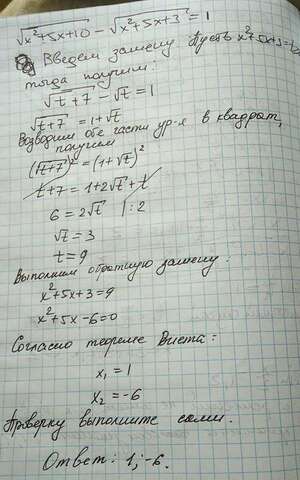 √x²+5x+10 - √x²+5x+3 = 1
Введем замену. Пусть x²+5x+3=t,
тогда получим:
√t+7 - √t = 1
√t+7 = 1+√t
Возводим обе части ур-я в квадрат,
получим
(√t+7)² = (1+√t)²
t+7 = 1+2√t+t
6 = 2√t |:2
√t = 3
t = 9
Выполним обратную замену:
x²+5x+3=9
x²+5x-6=0
Согласно теореме Виета:
x₁ = 1
x₂ = -6
Проверку выполните сами.
Ответ: 1; -6.